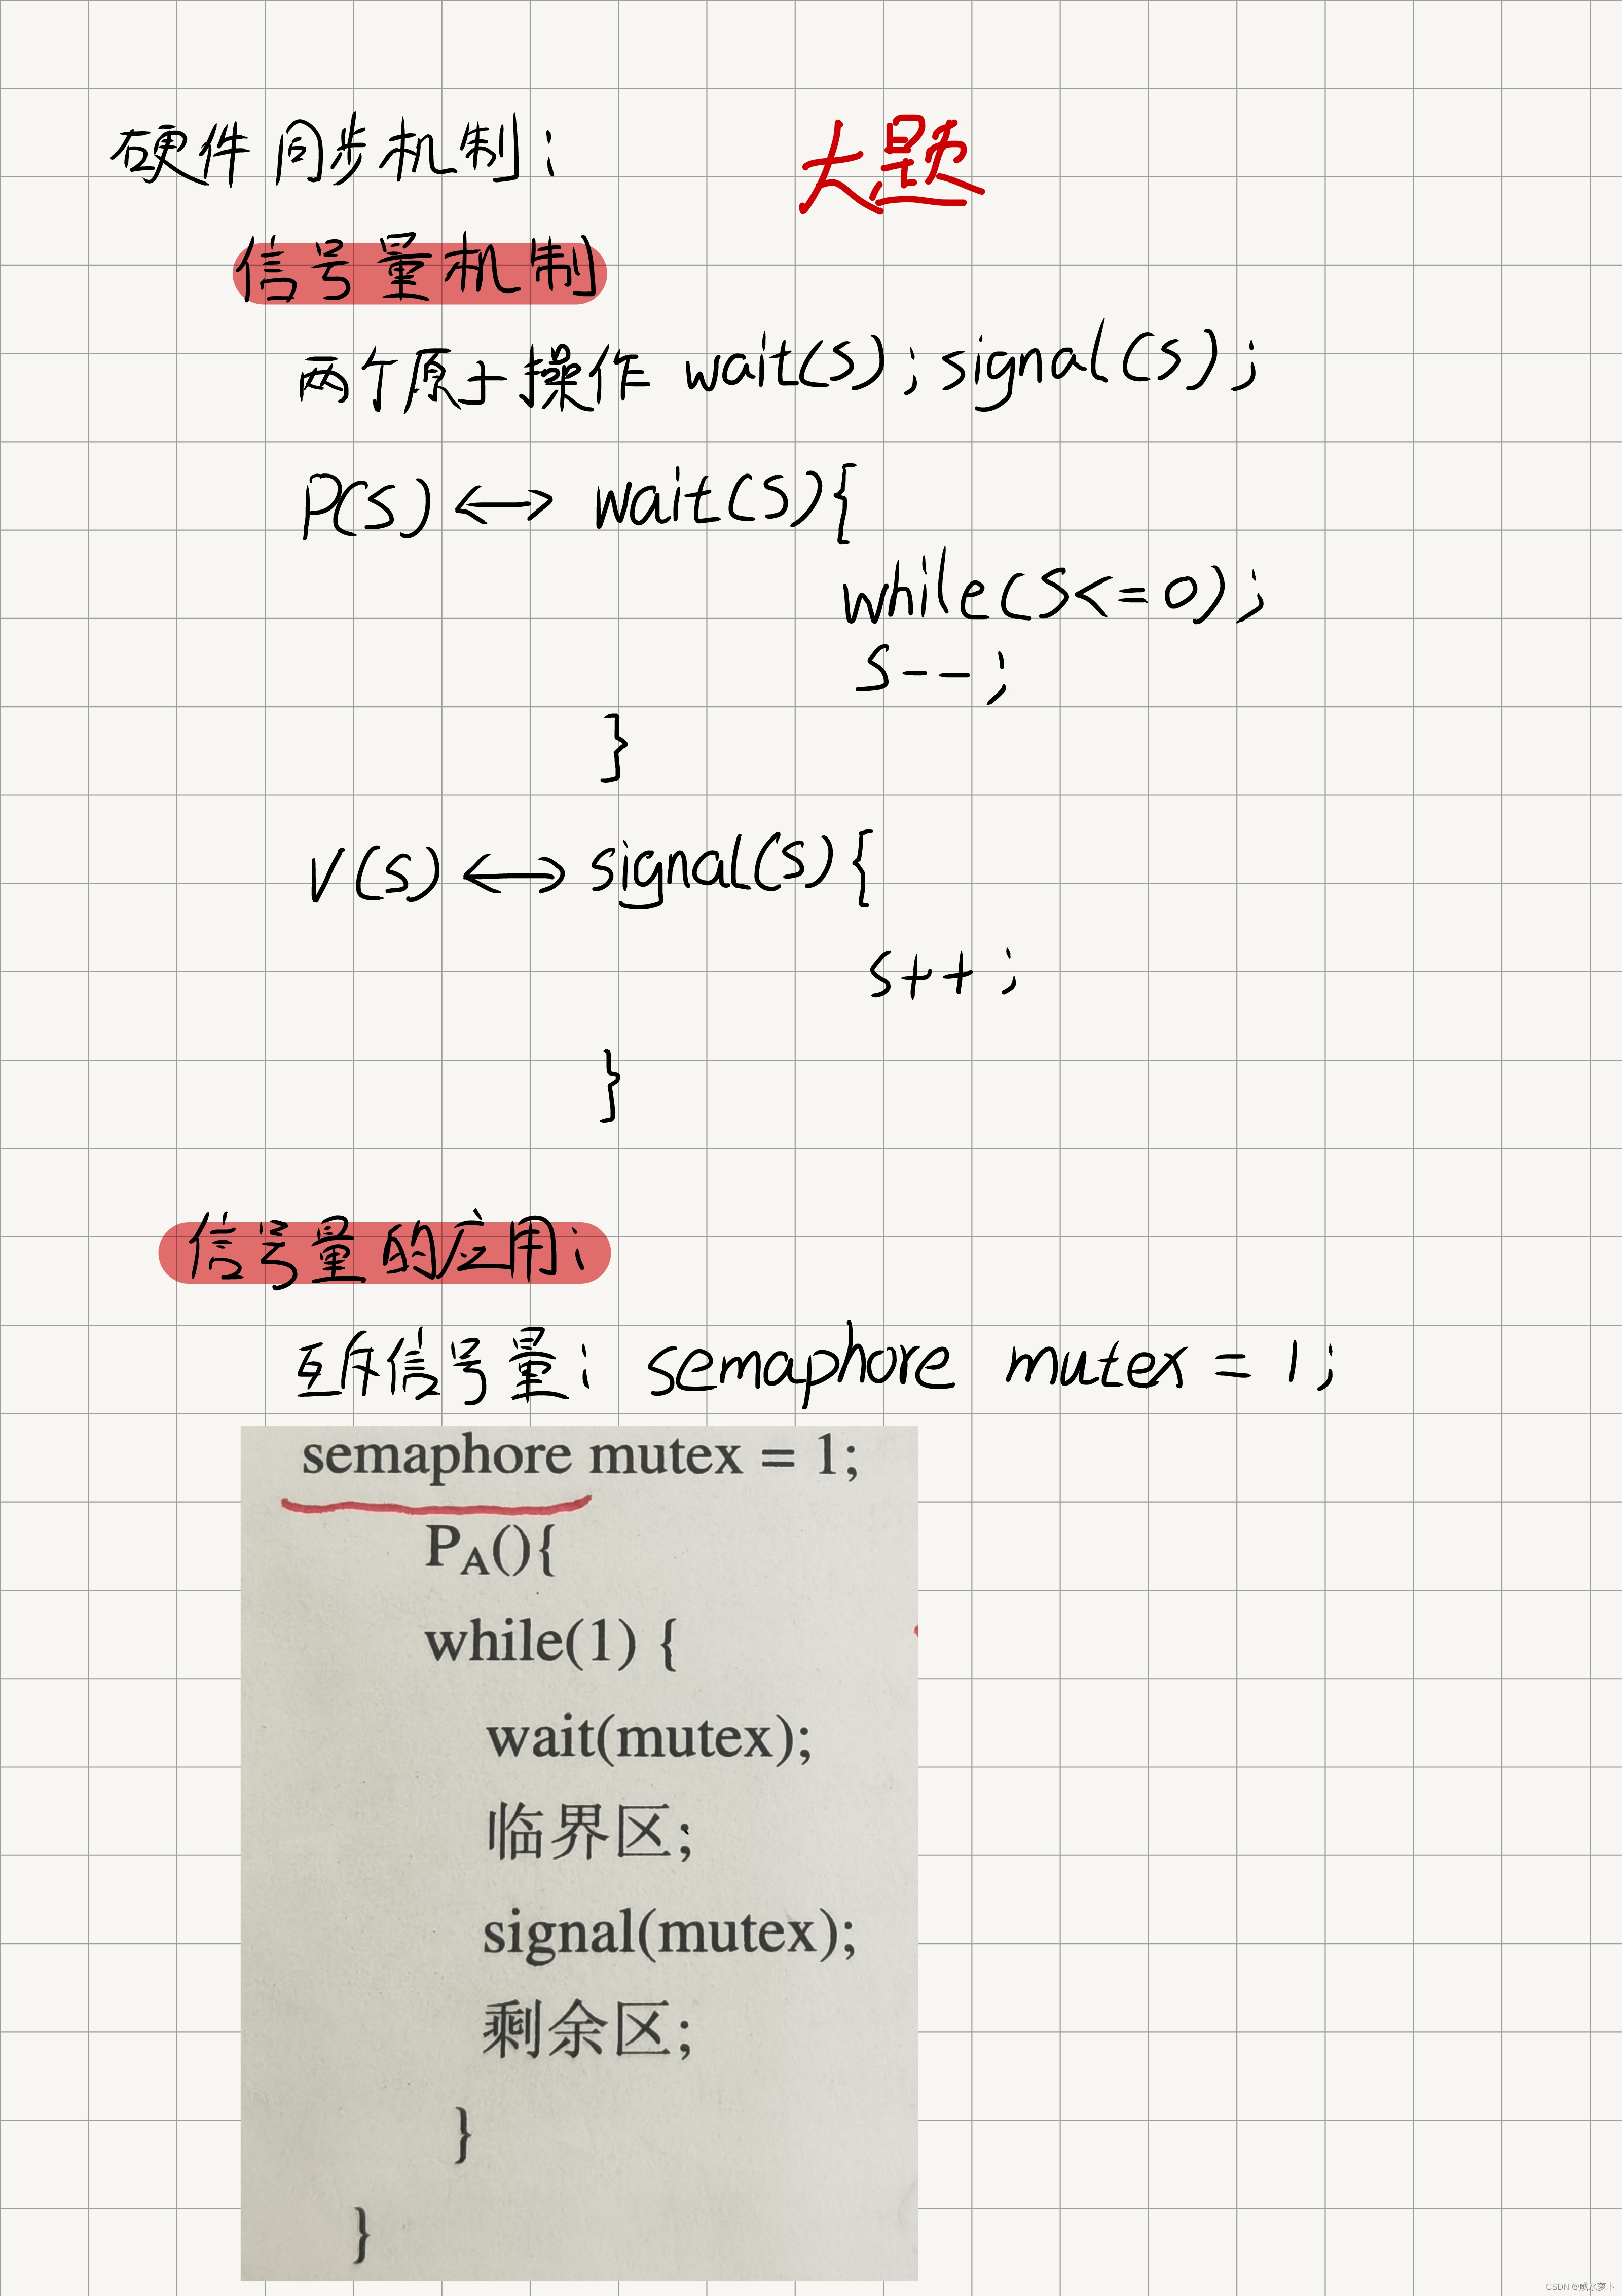 硬件同步机制：
大题
信号量机制
两个原子操作 wait(S); signal(S);
P(S) ⟷ wait(S){
while(S<=0);
S--;
}
V(S) ⟷ signal(S){
S++;
}
信号量的应用：
互斥信号量：semaphore mutex = 1;
semaphore mutex = 1;
PA(){
while(1) {
wait(mutex);
临界区;
signal(mutex);
剩余区;
}
}
CSDN @咸水萝卜